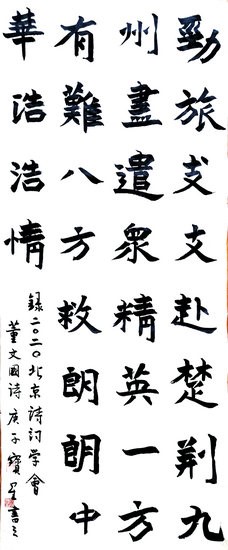 勁旅支支赴楚荆九
州盡遣衆精英一方
有難八方救朗朗中
華浩浩情
録二〇二〇北京詩詞学會
董文國詩庚子寶書之